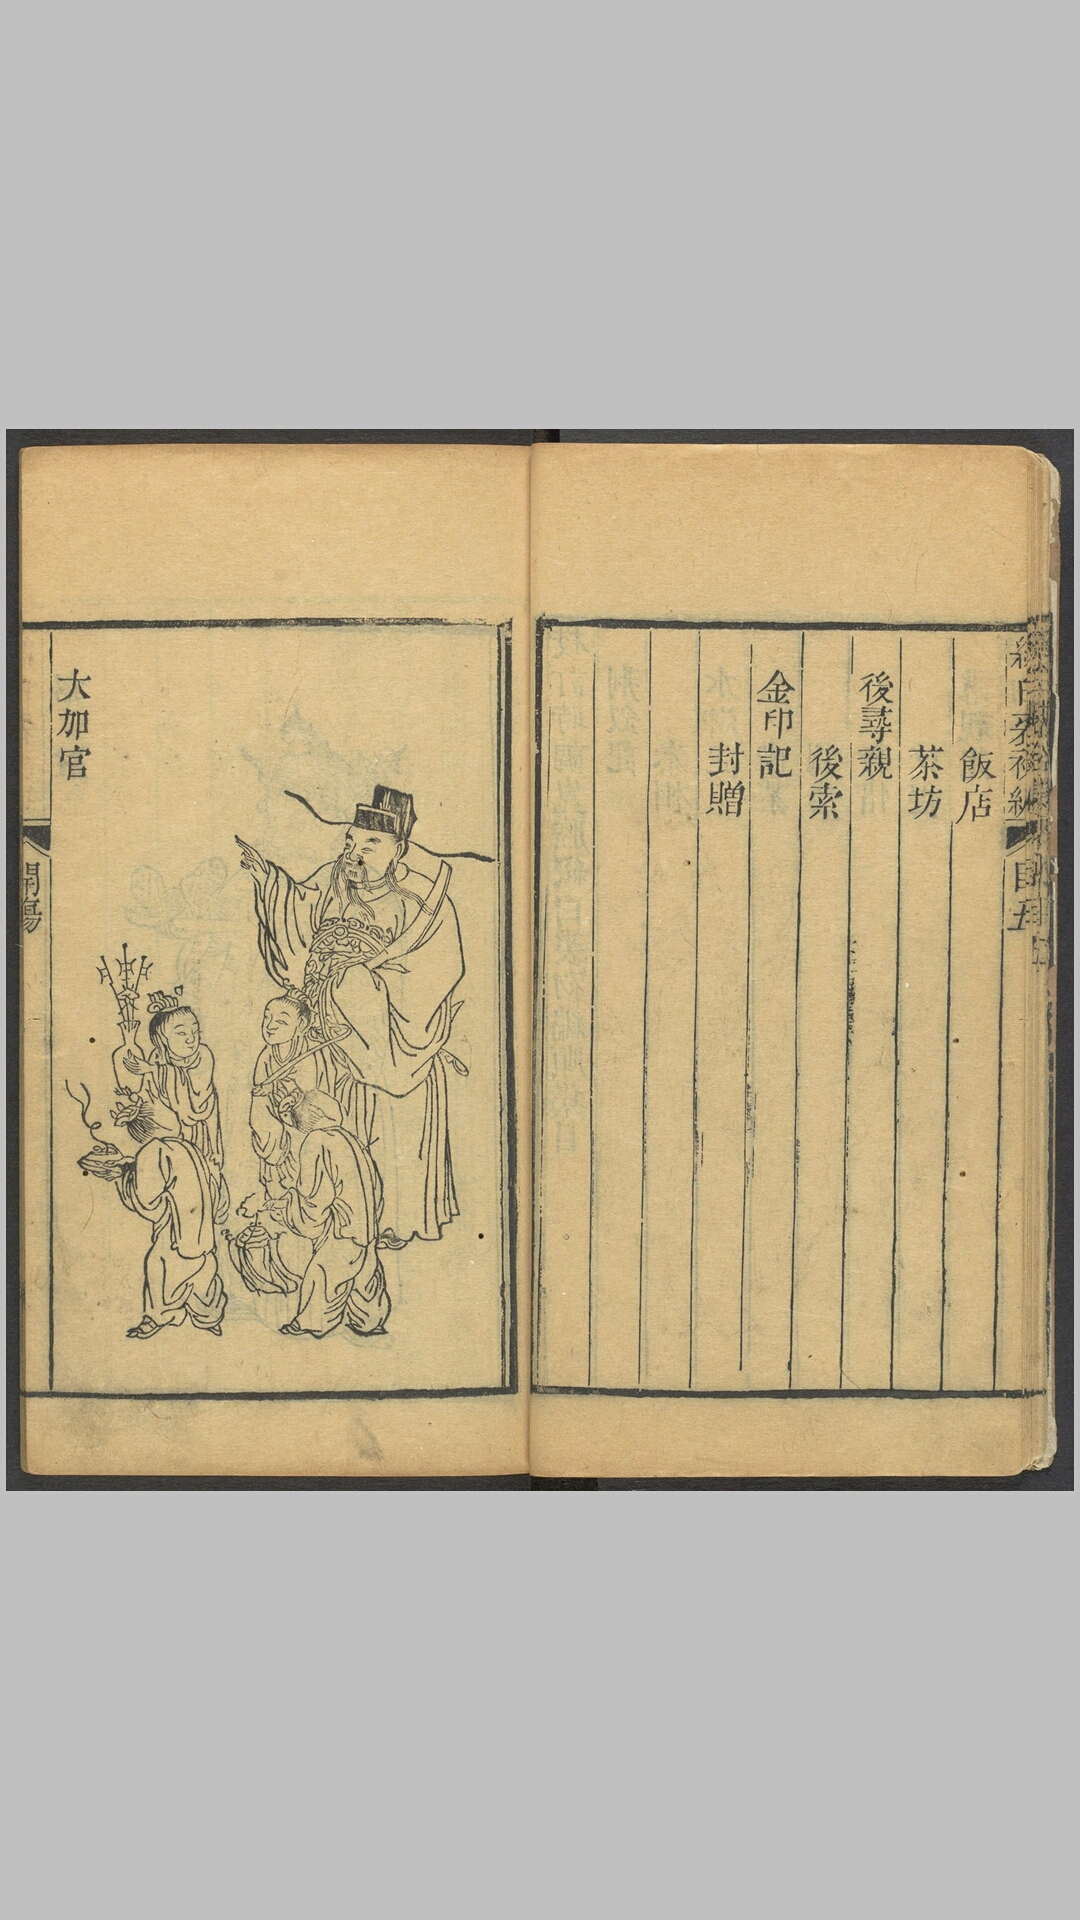 飯店
茶坊
後尋親
後索
金印記
封贈
大加官
開場